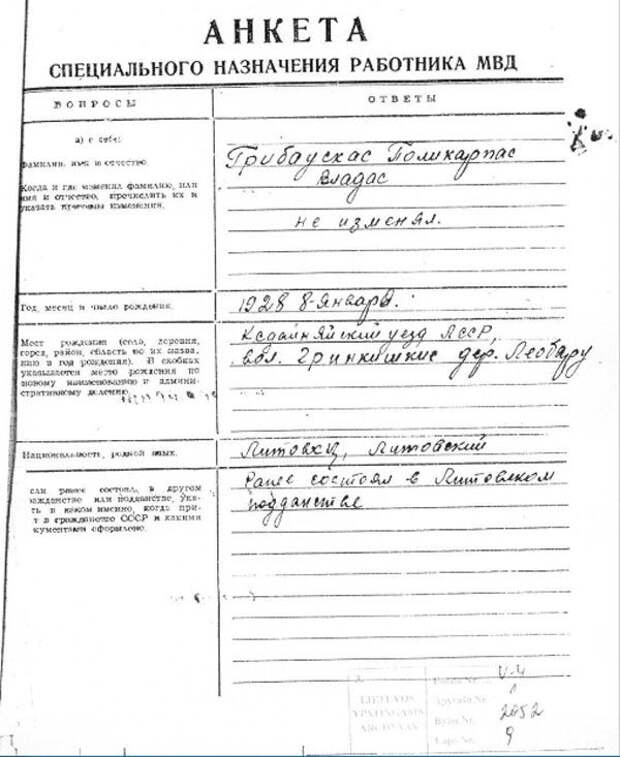 АНКЕТА
СПЕЦИАЛЬНОГО НАЗНАЧЕНИЯ РАБОТНИКА МВД
ВОПРОСЫ
ОТВЕТЫ
а) о себе:
Фамилия, имя и отчество.
Грибаускас Поликарпас
Владас
Когда и где изменял фамилию, или
имя и отчество, перечислить их и
указать причины изменения.
не изменял.
Год, месяц и число рождения.
1928 8-Января.
Мест рождения (село, деревня,
город, район, область по их назва-
нию в год рождения). В скобках
указывается место рождения по
новому наименованию и админи-
стративному делению.
Кедайняйский уезд ЛССР,
вол. Гринкишкис дер. Леобару
Национальность, родной язык.
Литовец, Литовский
сли ранее состоял, в другом
ажданстве или подданстве, Ука-
ть в каком именно, когда при-
т в гражданство СССР и какими
кументами оформлено.
Ранее состоял в Литовском
подданстве
LIETUVOS
YPATINGASIS
ARCHYVAS
Fondo Nr. V-4
Apyrašo Nr. 1
Bylos Nr. 2052
Lapo Nr. 9